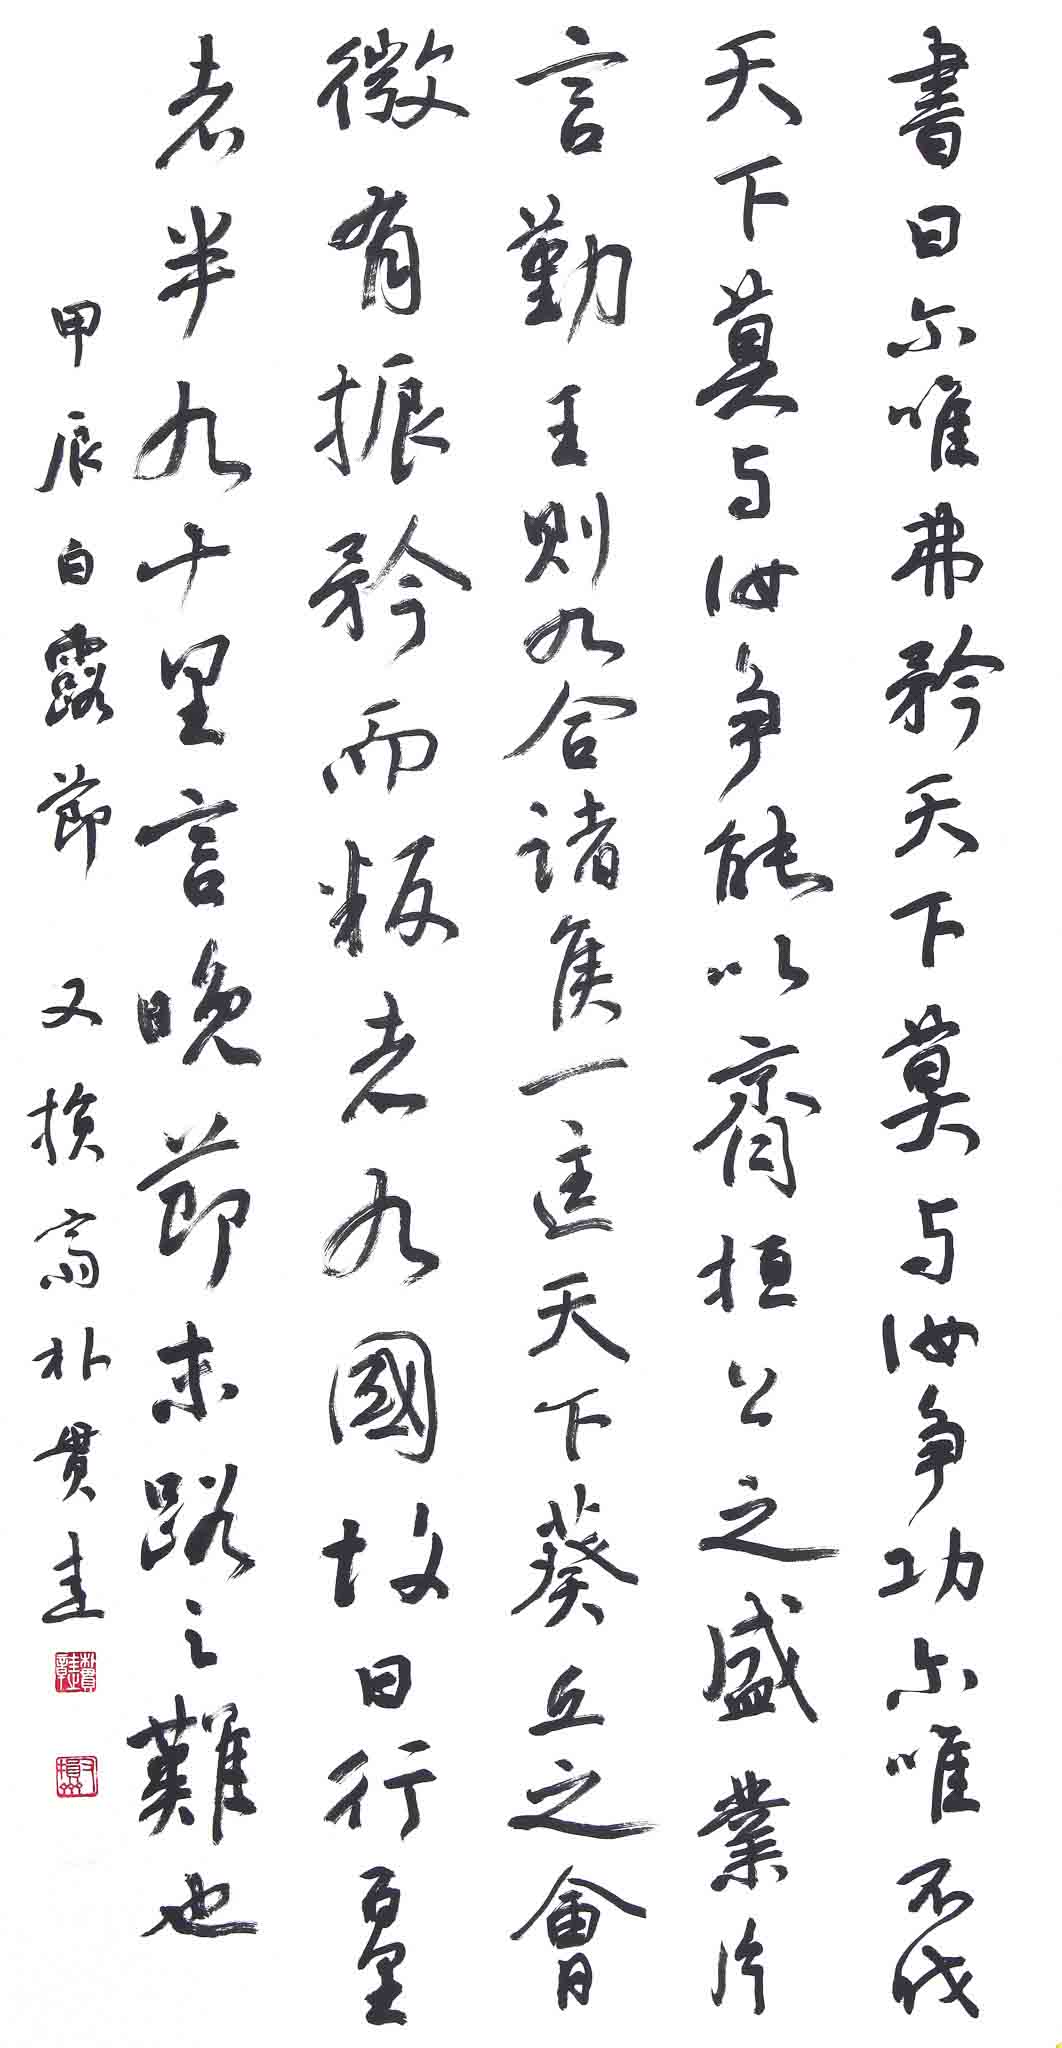 書曰尔唯弗矜天下莫与汝争功尔唯不伐
天下莫与汝争能以齊桓公之盛業片
言勤王则九合诸侯一匡天下葵丘之會
微有振矜而叛者九國故曰行百里
者半九十里言晚節末路之難也
甲辰白露節 又損齋朴貫圭